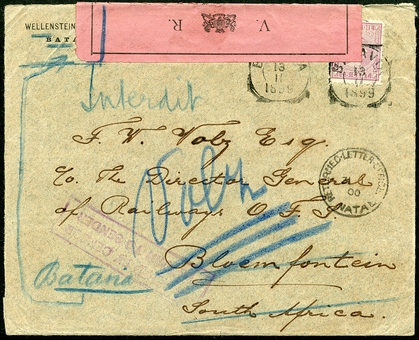 WELLENSTEIN
BATA
V. R.
13
11
1899
13
11
1899
Interdit
F. W. Volz Esq.
c/o The Director General
of Railways O. F. S.
Volz
RETURNED LETTER OFFICE
00
NATAL
Bloemfontein
Batavia
South Africa.